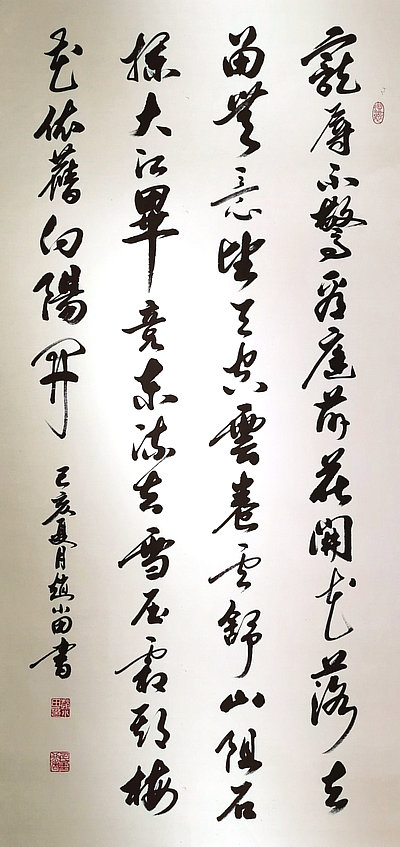 寵辱不驚看庭前花開花落去
留無意望天空雲卷云舒山阻石
攔大江畢竟東流去雪压霜欺梅
花依舊向陽開
己亥夏月趙小田書